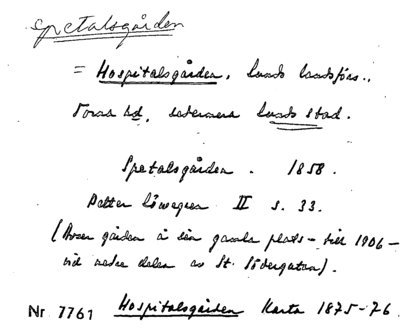 Spetalsgården
= Hospitalsgården, Lunds landsförs..,
Torna hd, sedermera Lunds stad.
Spetalsgården. 1858.
Petter Löwegren II s. 33.
(Avser gården å sin gamla plats – till 1906 –
vid nedre delen av St. Södergatan).
Nr 7761 Hospitalsgården Karta 1875-76